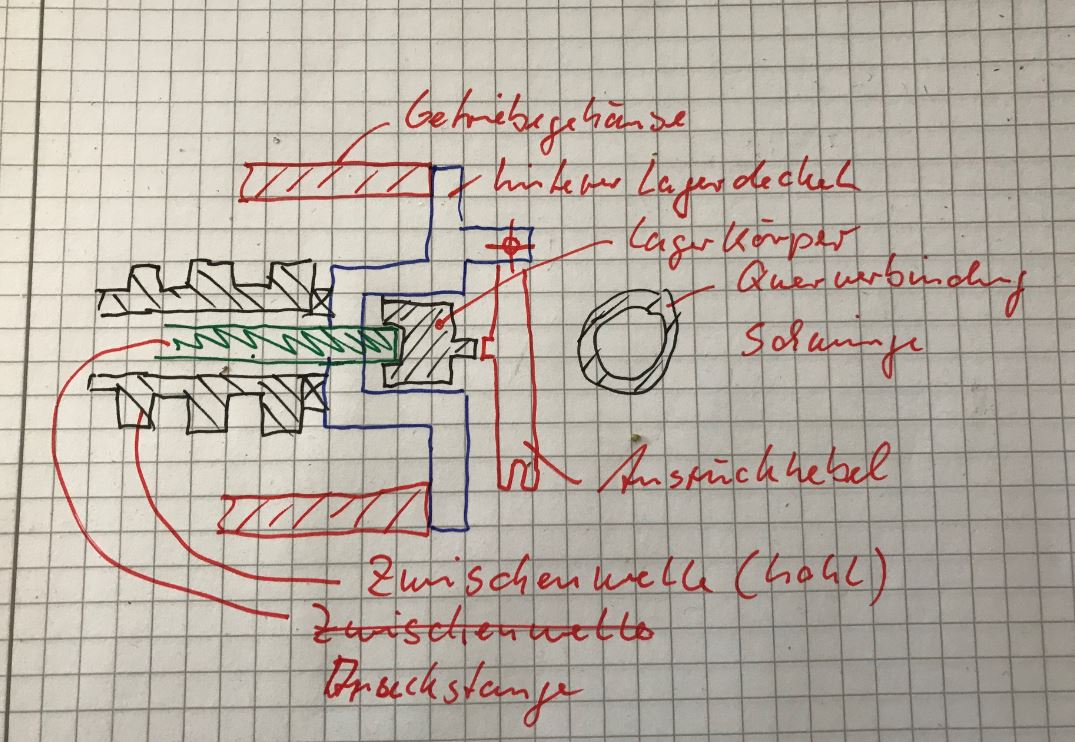 Getriebegehäuse
hinterer Lagerdeckel
Lagerkörper
Querverbindung
Schwinge
Ausrückhebel
Zwischenwelle (hohl)
Zwischenwelle
Druckstange